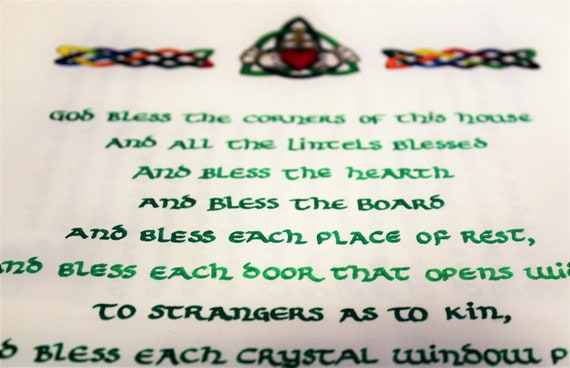 God bless the corners of this house
And all the lintels blessed
And bless the hearth
and bless the board
and bless each place of rest,
bless each door that opens
to strangers as to kin,
bless each crystal window